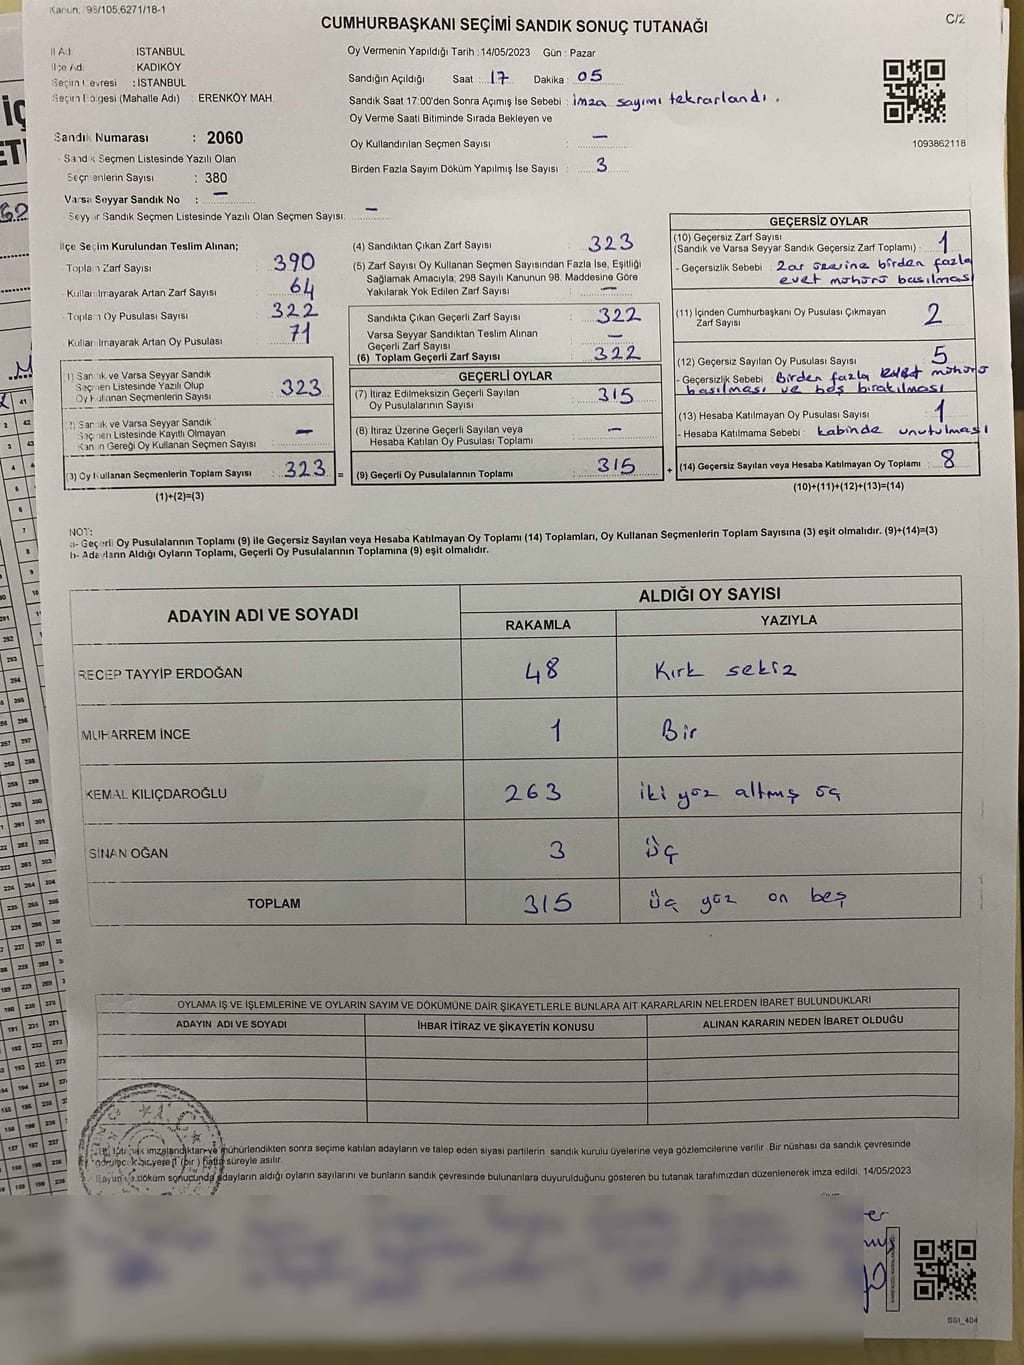 Kanun: 98/105,6271/18-1
C/2
CUMHURBAŞKANI SEÇİMİ SANDIK SONUÇ TUTANAĞI
İl Adı : İSTANBUL
İlçe Adı : KADIKÖY
Seçim Çevresi : İSTANBUL
Seçim Bölgesi (Mahalle Adı) : ERENKÖY MAH.
Sandık Numarası : 2060
Sandık Seçmen Listesinde Yazılı Olan
Seçmenlerin Sayısı : 380
Varsa Seyyar Sandık No : —
Seyyar Sandık Seçmen Listesinde Yazılı Olan Seçmen Sayısı: —
Oy Vermenin Yapıldığı Tarih : 14/05/2023 Gün : Pazar
Sandığın Açıldığı Saat : 17 Dakika : 05
Sandık Saat 17:00'den Sonra Açımış İse Sebebi : imza sayımı tekrarlandı.
Oy Verme Saati Bitiminde Sırada Bekleyen ve
Oy Kullandırılan Seçmen Sayısı : —
Birden Fazla Sayım Döküm Yapılmış İse Sayısı : 3
1093862118
İlçe Seçim Kurulundan Teslim Alınan;
Toplam Zarf Sayısı : 390
Kullanılmayarak Artan Zarf Sayısı : 64
Toplam Oy Pusulası Sayısı : 322
Kullanılmayarak Artan Oy Pusulası : 71
(1) Sandık ve Varsa Seyyar Sandık
Seçmen Listesinde Yazılı Olup
Oy Kullanan Seçmenlerin Sayısı : 323
(2) Sandık ve Varsa Seyyar Sandık
Seçmen Listesinde Kayıtlı Olmayan
Kanun Gereği Oy Kullanan Seçmen Sayısı : —
(3) Oy Kullanan Seçmenlerin Toplam Sayısı : 323
(1)+(2)=(3)
(4) Sandıktan Çıkan Zarf Sayısı : 323
(5) Zarf Sayısı Oy Kullanan Seçmen Sayısından Fazla İse, Eşitliği
Sağlamak Amacıyla; 298 Sayılı Kanunun 98. Maddesine Göre
Yakılarak Yok Edilen Zarf Sayısı : —
Sandıkta Çıkan Geçerli Zarf Sayısı : 322
Varsa Seyyar Sandıktan Teslim Alınan
Geçerli Zarf Sayısı : —
(6) Toplam Geçerli Zarf Sayısı : 322
GEÇERLİ OYLAR
(7) İtiraz Edilmeksizin Geçerli Sayılan
Oy Pusulalarının Sayısı : 315
(8) İtiraz Üzerine Geçerli Sayılan veya
Hesaba Katılan Oy Pusulası Toplamı : —
= (9) Geçerli Oy Pusulalarının Toplamı : 315
GEÇERSİZ OYLAR
(10) Geçersiz Zarf Sayısı
(Sandık ve Varsa Seyyar Sandık Geçersiz Zarf Toplamı) : 1
- Geçersizlik Sebebi : Zar üzerine birden fazla
evet mühürü basılması
(11) İçinden Cumhurbaşkanı Oy Pusulası Çıkmayan
Zarf Sayısı 2
(12) Geçersiz Sayılan Oy Pusulası Sayısı : 5
- Geçersizlik Sebebi : Birden fazla evet mühürü
basılması ve boş bırakılması
(13) Hesaba Katılmayan Oy Pusulası Sayısı : 1
- Hesaba Katılmama Sebebi : kabinde unutulması
+ (14) Geçersiz Sayılan veya Hesaba Katılmayan Oy Toplamı : 8
(10)+(11)+(12)+(13)=(14)
NOT:
a- Geçerli Oy Pusulalarının Toplamı (9) ile Geçersiz Sayılan veya Hesaba Katılmayan Oy Toplamı (14) Toplamları, Oy Kullanan Seçmenlerin Toplam Sayısına (3) eşit olmalıdır. (9)+(14)=(3)
b- Adayların Aldığı Oyların Toplamı, Geçerli Oy Pusulalarının Toplamına (9) eşit olmalıdır.
ADAYIN ADI VE SOYADI
ALDIĞI OY SAYISI
RAKAMLA YAZIYLA
RECEP TAYYİP ERDOĞAN 48 Kırk sekiz
MUHARREM İNCE 1 Bir
KEMAL KILIÇDAROĞLU 263 iki yüz altmış üç
SİNAN OĞAN 3 Üç
TOPLAM 315 Üç yüz on beş
OYLAMA İŞ VE İŞLEMLERİNE VE OYLARIN SAYIM VE DÖKÜMÜNE DAİR ŞİKAYETLERLE BUNLARA AİT KARARLARIN NELERDEN İBARET BULUNDUKLARI
ADAYIN ADI VE SOYADI İHBAR İTİRAZ VE ŞİKAYETİN KONUSU ALINAN KARARIN NEDEN İBARET OLDUĞU
imzalandıktan ve mühürlendikten sonra seçime katılan adayların ve talep eden siyasi partilerin sandık kurulu üyelerine veya gözlemcilerine verilir. Bir nüshası da sandık çevresinde
bir yere (bir) hafta süreyle asılır.
Sayım ve döküm sonucunda adayların aldığı oyların sayılarını ve bunların sandık çevresinde bulunanlara duyurulduğunu gösteren bu tutanak tarafımızdan düzenlenerek imza edildi. 14/05/2023
SSI_404